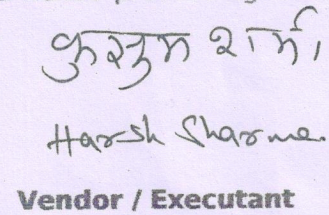 कुसुम शर्मा
Harsh Sharma
Vendor / Executant